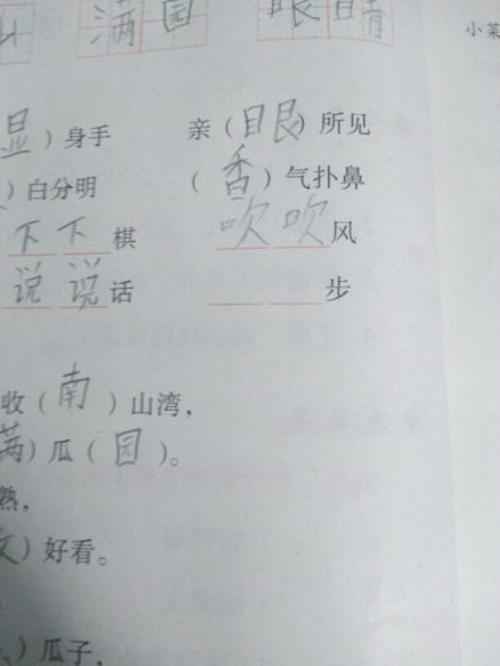 满园 眼睛
小菜
显）身手 亲（眼）所见
）白分明 （香）气扑鼻
下下棋 吹吹风
说说话 步
收（南）山湾，
满）瓜（园）。
熟，
）好看。
）瓜子，